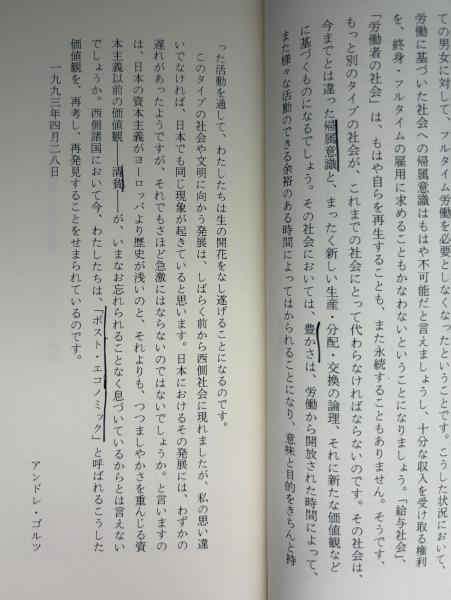 ての男女に対して、フルタイム労働を必要としなくなったということです。こうした状況において、
労働に基づいた社会への帰属意識はもはや不可能だと言えましょうし、十分な収入を受け取る権利
を、終身・フルタイムの雇用に求めることもかなわないということになりましょう。「給与社会」、
「労働者の社会」は、もはや自らを再生することも、また永続することもありません。そうです、
もっと別のタイプの社会が、これまでの社会にとって代わらなければならないのです。その社会は、
今までとは違った帰属意識と、まったく新しい生産・分配・交換の論理、それに新たな価値観など
に基づくものになるでしょう。その社会においては、豊かさは、労働から開放された時間によって、
また様々な活動のできる余裕のある時間によってはかられることになり、意味と目的をきちんと持
った活動を通して、わたしたちは生の開花をなし遂げることになるのです。
このタイプの社会や文明に向かう発展は、しばらく前から西側社会に現れましたが、私の思い違
いでなければ、日本でも同じ現象が起きていると思います。日本におけるその発展には、わずかの
遅れがあったようですが、それでもさほど急激にはならないのではないでしょうか。と言いますの
は、日本の資本主義がヨーロッパより歴史が浅いのと、それよりも、つつましやかさを重んじる資
本主義以前の価値観――清貧――が、いまなお忘れられることなく息づいているからとは言えない
でしょうか。西側諸国において今、わたしたちは、「ポスト・エコノミック」と呼ばれるこうした
価値観を、再考し、再発見することをせまられているのです。
一九九三年四月二八日
アンドレ・ゴルツ